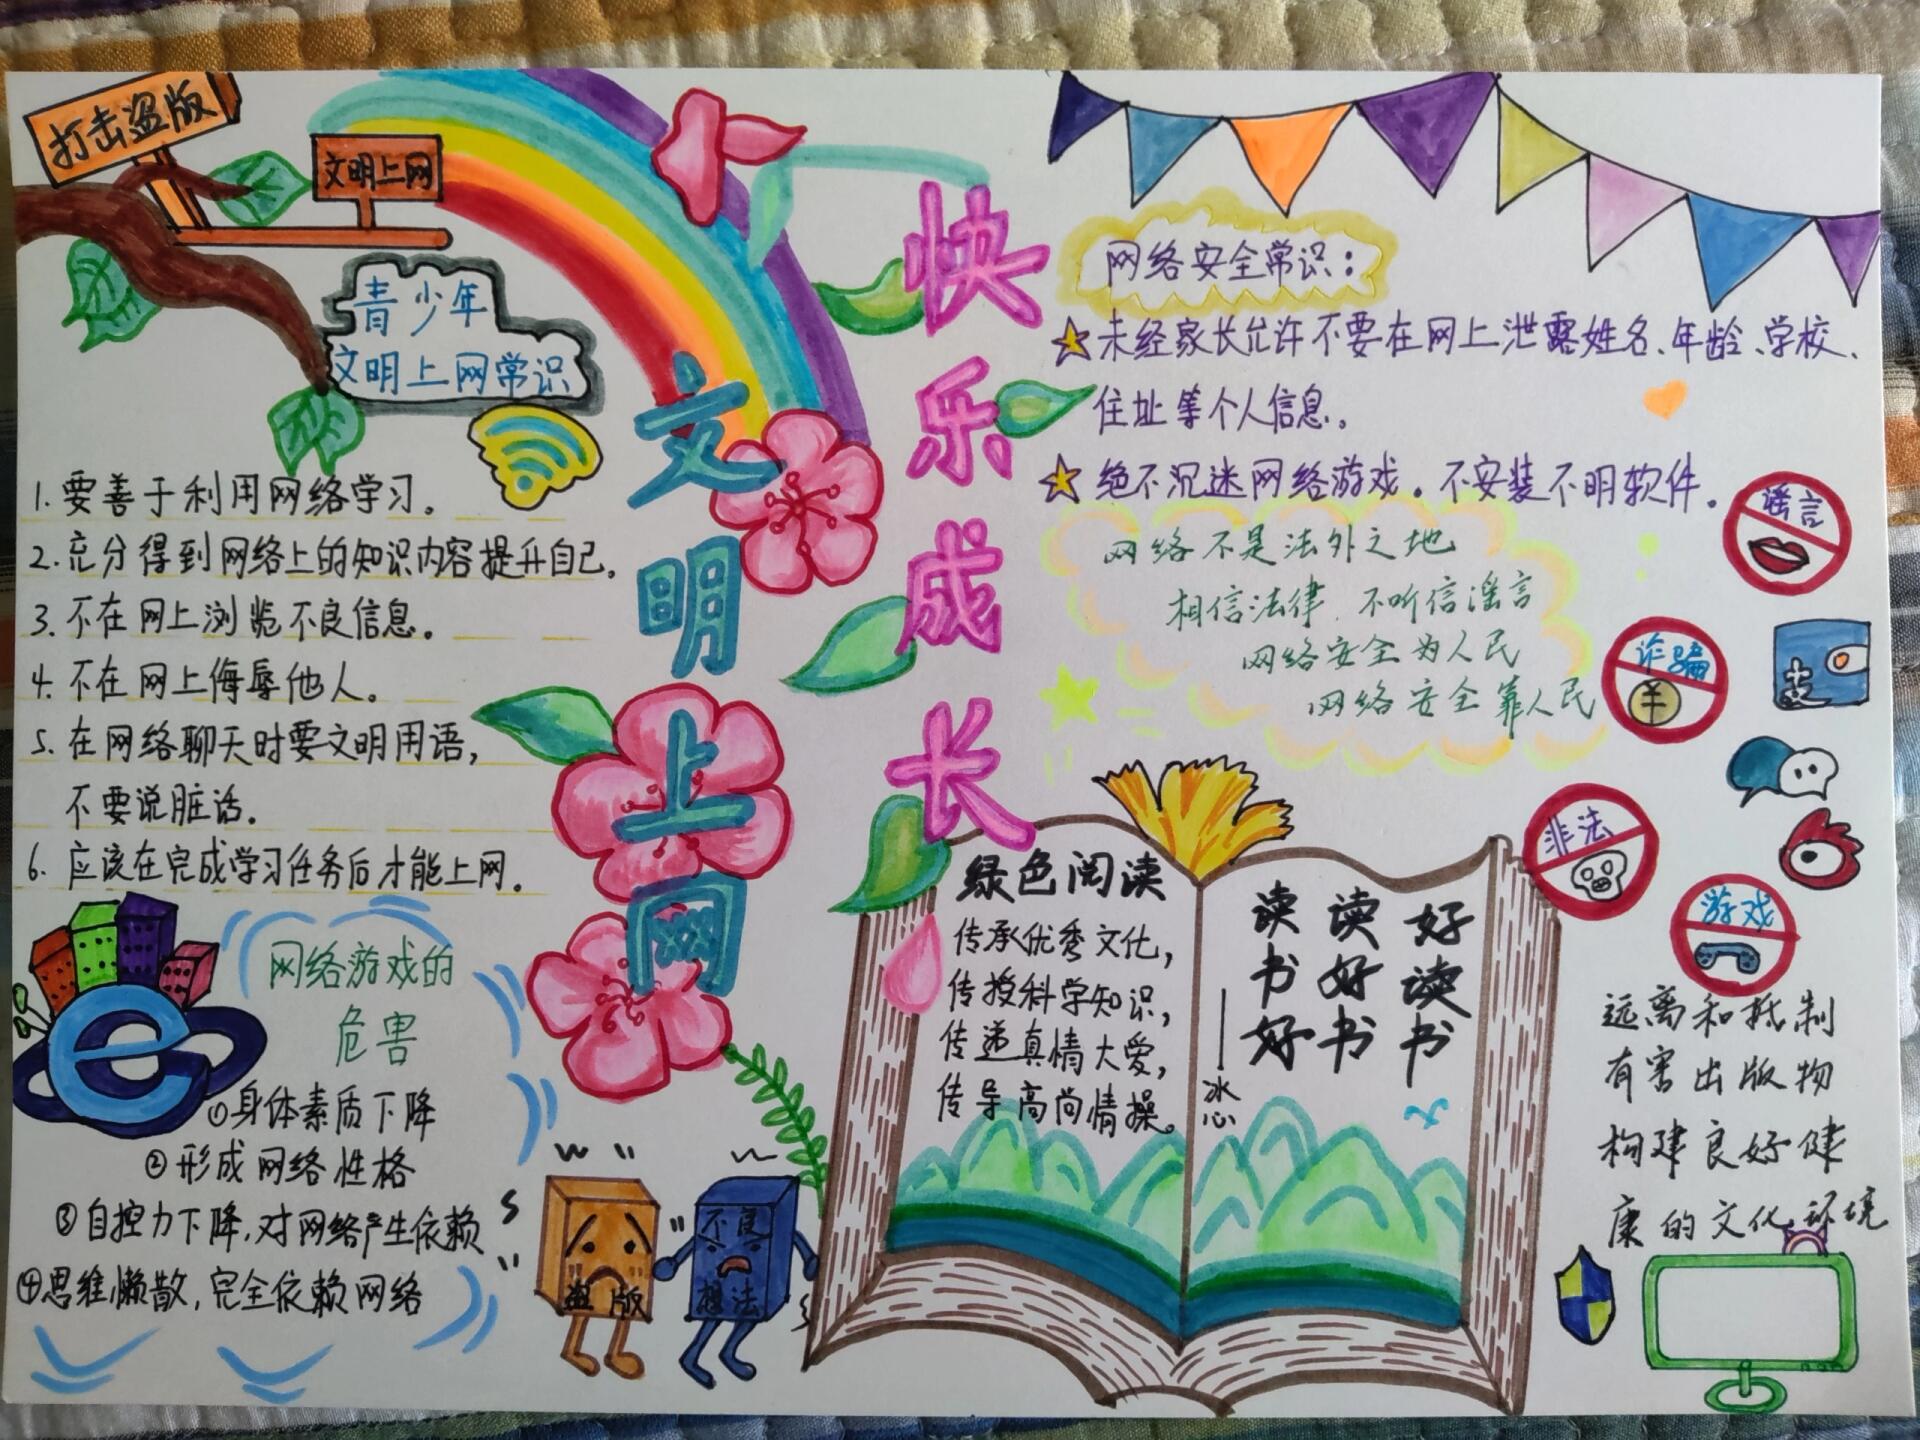 打击盗版
文明上网
青少年
文明上网常识
1. 要善于利用网络学习。
2. 充分得到网络上的知识内容提升自己。
3. 不在网上浏览不良信息。
4. 不在网上侮辱他人。
5. 在网络聊天时要文明用语，
不要说脏话。
6. 应该在完成学习任务后才能上网。
网络游戏的
危害
①身体素质下降
②形成网络性格
③自控力下降，对网络产生依赖
④思维懒散，完全依赖网络
文明上网
快乐成长
盗版
不良
想法
网络安全常识：
未经家长允许不要在网上泄露姓名、年龄、学校、
住址等个人信息。
绝不沉迷网络游戏。不安装不明软件。
网络不是法外之地
相信法律，不听信谣言
网络安全为人民
网络安全靠人民
谣言
诈骗
非法
游戏
绿色阅读
传承优秀文化，
传授科学知识，
传递真情大爱，
传导高尚情操。
好读书
读好书
读书好
——冰心
远离和抵制
有害出版物
构建良好健
康的文化环境